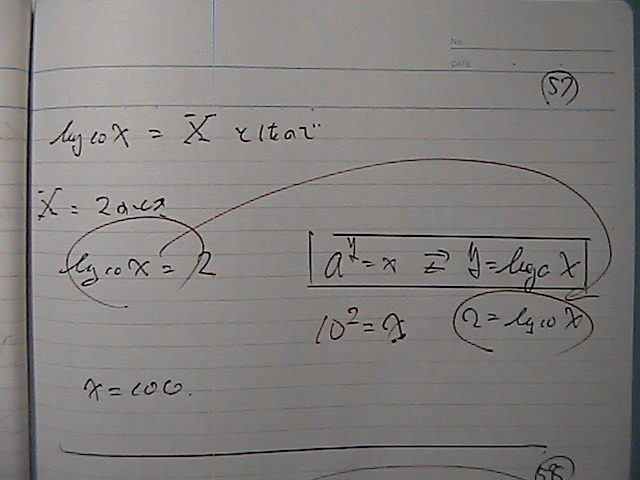 No.
DATE
57
log10 X = X としたので
X = 2のとき
log10 X = 2
a^y = x ⇄ y = loga X
10^2 = x 2 = log10 X
x = 100.
58